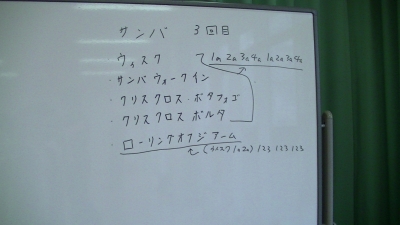 サンバ 3回目
・ウィスク 1a 2a 3a 4a 1a 2a 3a 4a
・サンバウォークイン
・クリスクロス・ボタフォゴ
・クリスクロス ボルタ
・ローリングオフジアーム
1a2a) 123 123 123